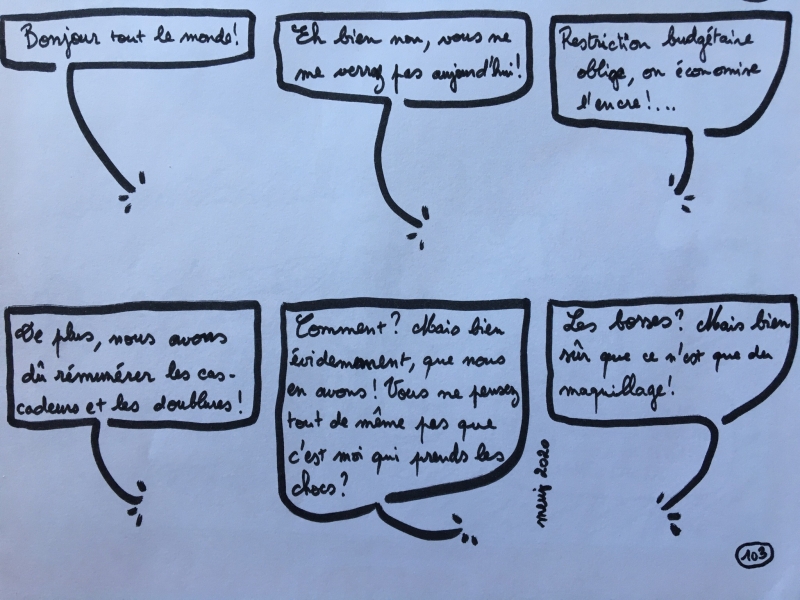 Bonjour tout le monde!
Eh bien non, vous ne
me verrez pas aujourd'hui!
Restriction budgétaire
oblige, on économise
l'encre!...
De plus, nous avons
dû rémunérer les cas-
cadeurs et les doublures!
Comment? Mais bien
évidemment, que nous
en avons! Vous ne pensez
tout de même pas que
c'est moi qui prends les
chocs?
Les bosses? Mais bien
sûr que ce n'est que du
maquillage!
2020
103